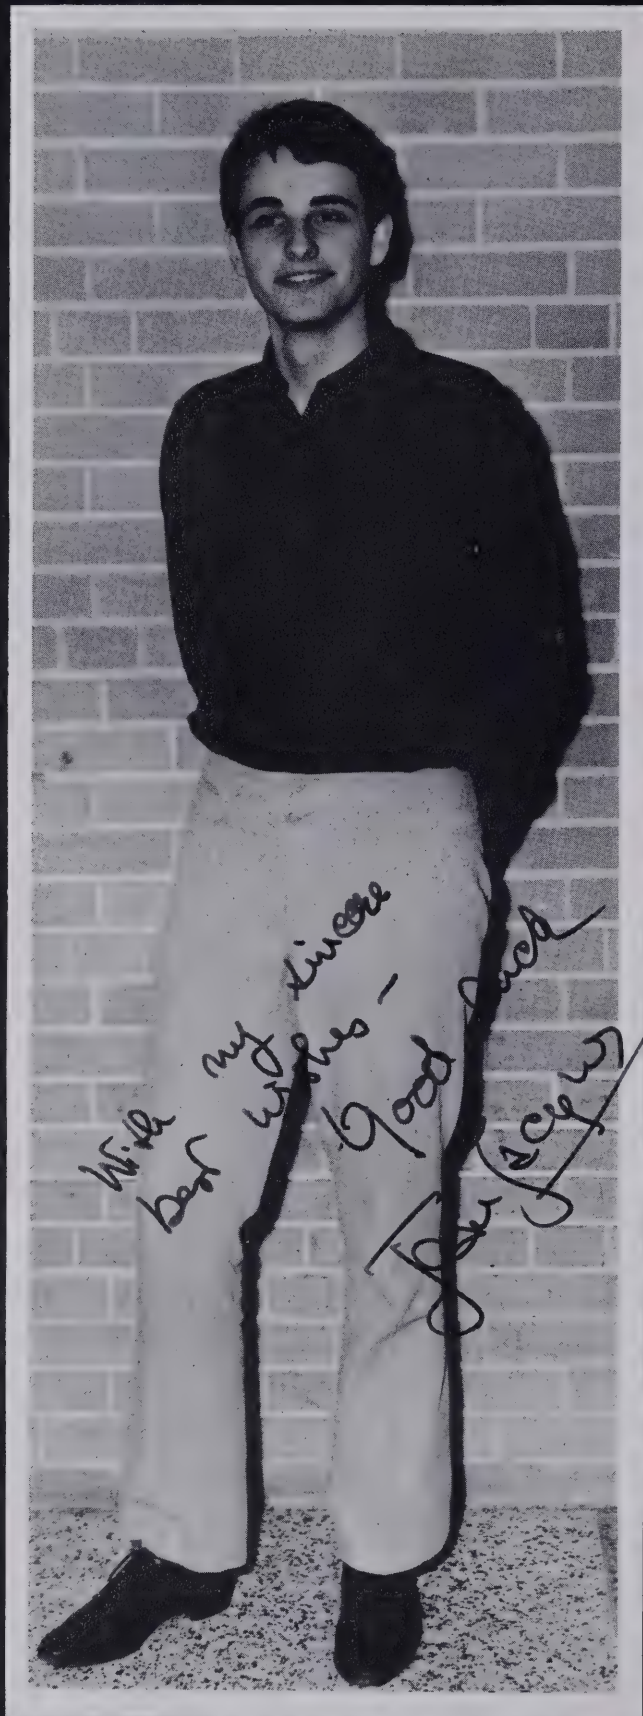 With my sincere
best wishes -
Good luck